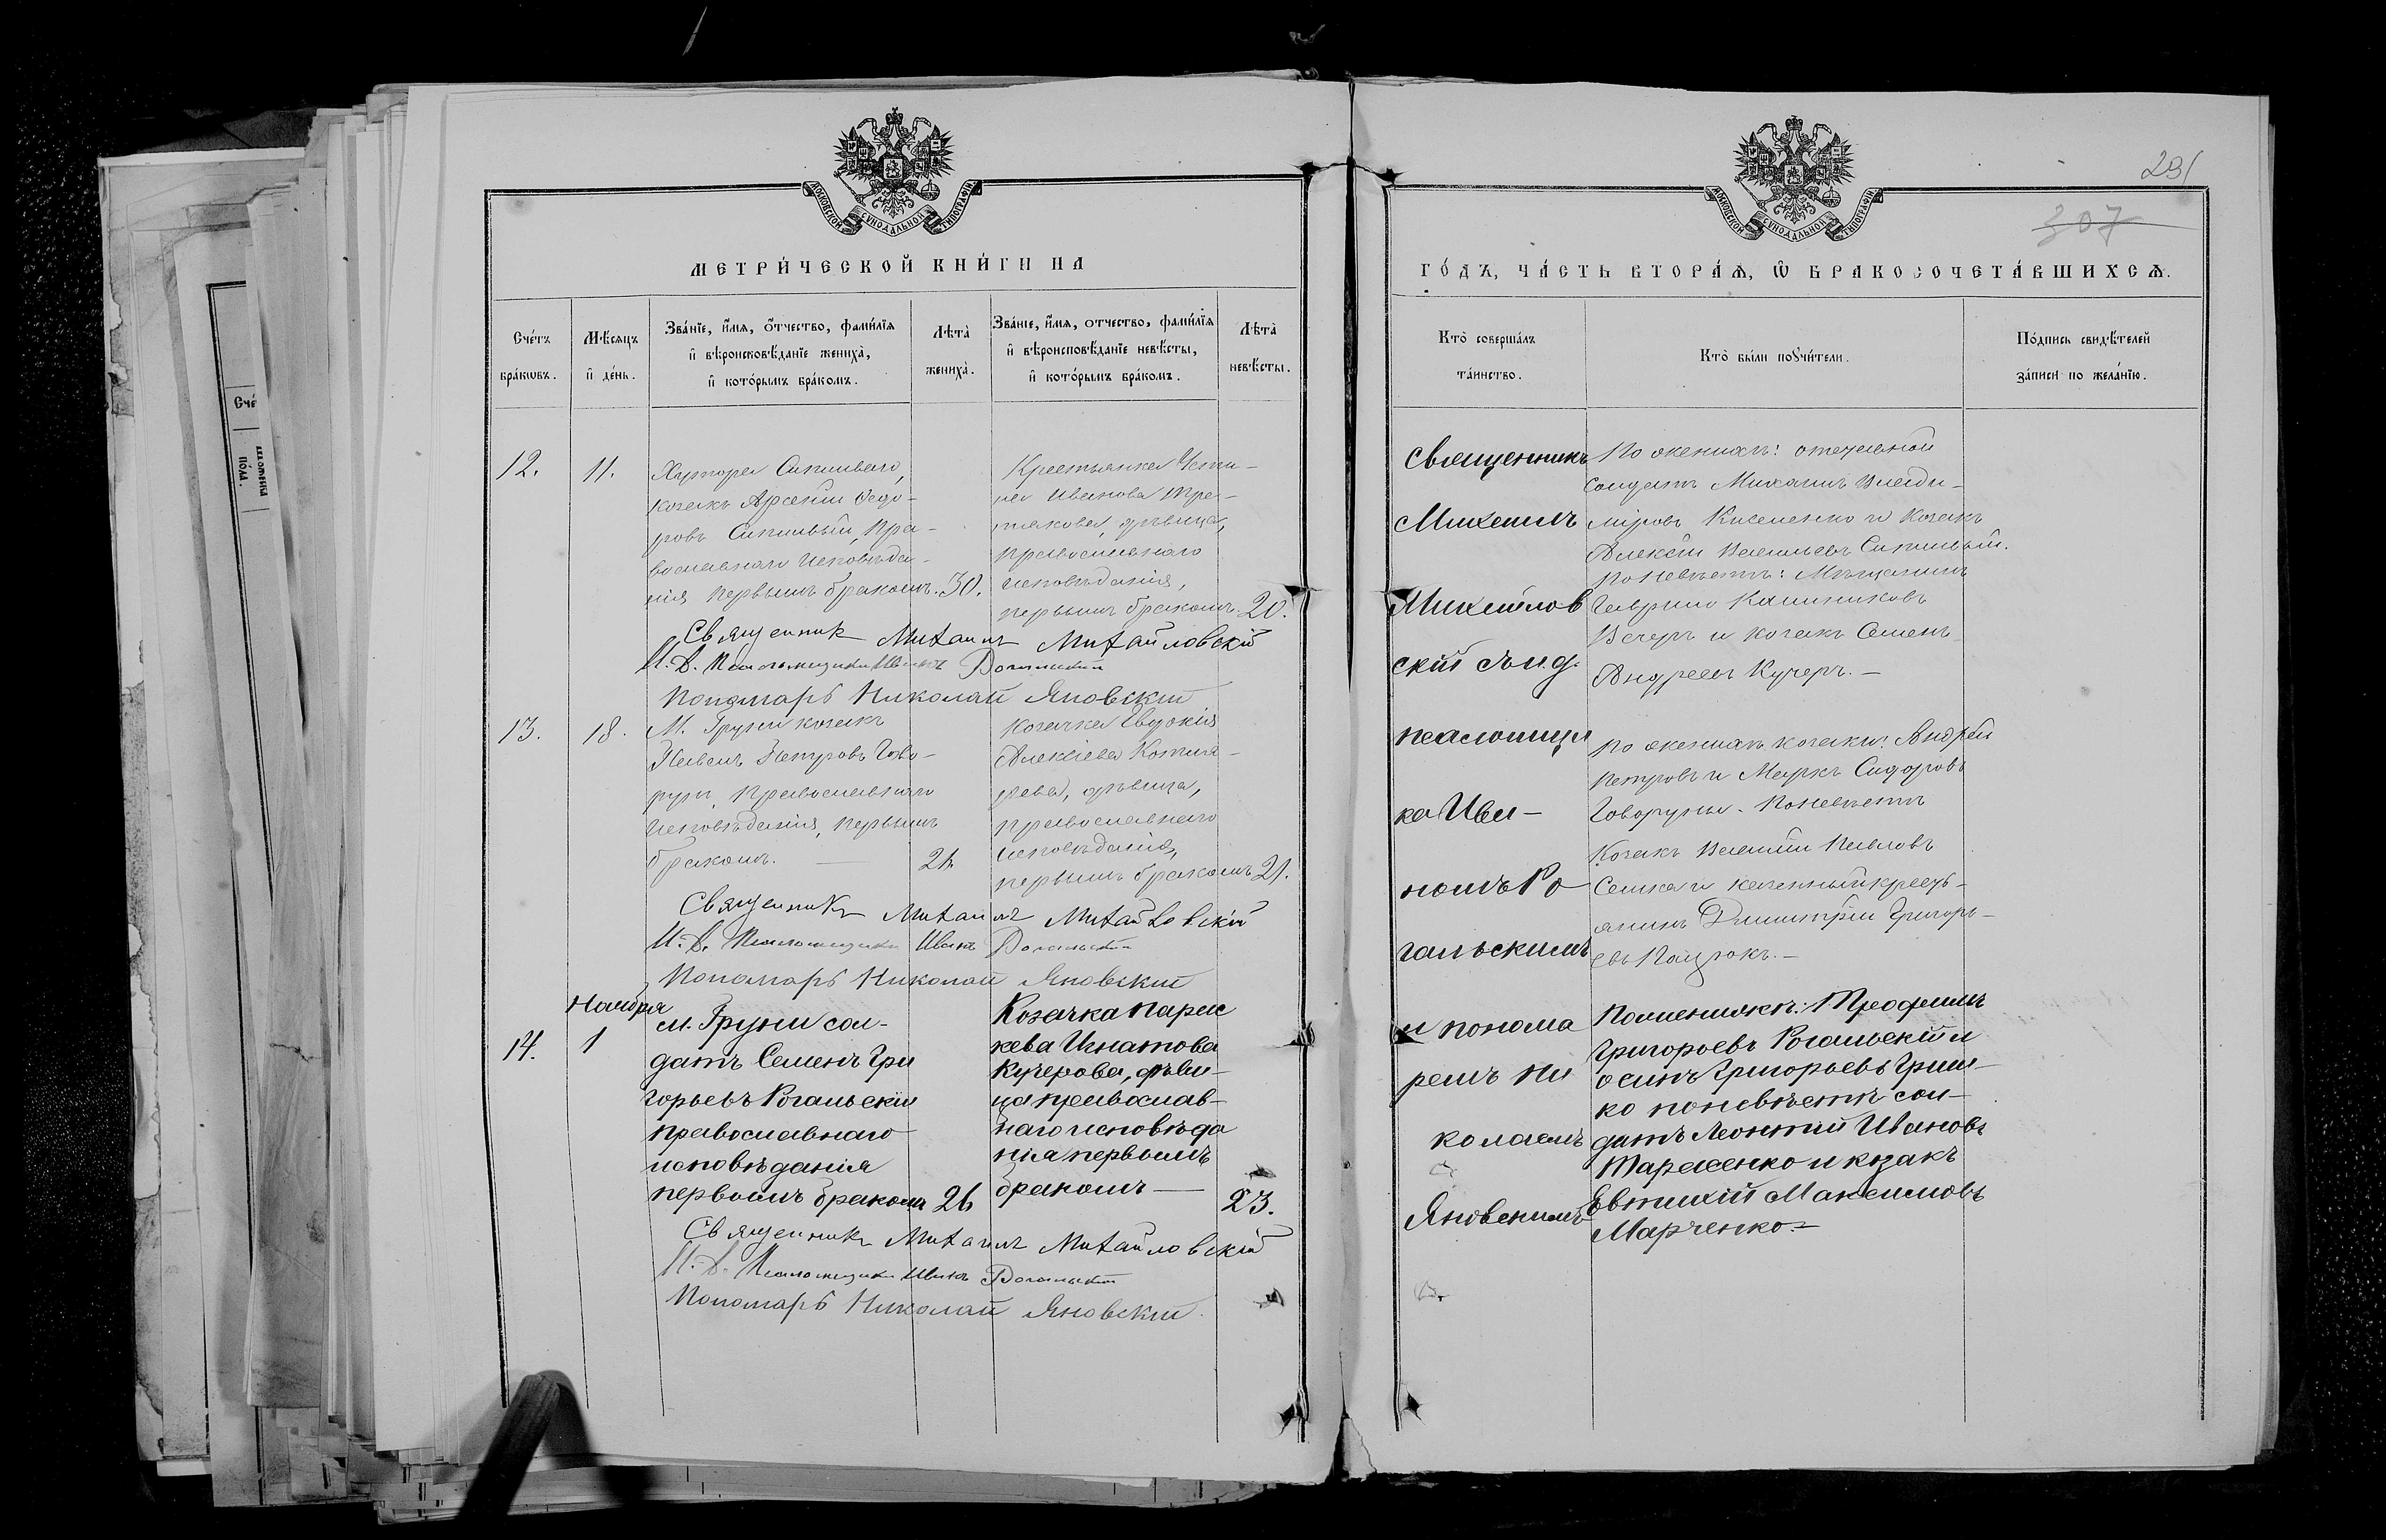 МОСКОВСКОЙ СѴНОДАЛЬНОЙ ТИПОГРАФІИ
МЕТРИ́ЧЕСКОЙ КНИ́ГИ НА
Сче́тъ бра́кωвъ.
Мѣ́сяцъ и҆ де́нь.
Зва́нїе, и҆́мѧ, ѻ҆́тчество, фами́лїѧ
и҆ вѣроисповѣ́данїе жениха̀,
и҆ кото́рымъ бра́комъ.
Лѣта̀ жениха̀.
Зва́нїе, и҆́мѧ, отчество, фами́лїѧ
и҆ вѣроисповѣ́данїе невѣ́сты,
и҆ кото́рымъ бра́комъ.
Лѣта̀ невѣ́сты.
12.
11.
Хутора
козакъ Арсеній Ѳедо-
ровъ Сипливый, Пра-
вославнаго Исповѣда-
нія первымъ бракомъ.
30.
Крестьянка
Иванова Тре-
тякова, дѣвица,
православнаго
исповѣданія,
первымъ бракомъ.
20.
Священникъ Михаилъ Михайловскій
И. д. Псаломщика Иванъ Рогальскій
Пономарь Николай Яновскій
13.
18.
М. Груни козакъ
Павелъ Петровъ Гово-
рунъ, Православнаго
Исповѣданія, первымъ
бракомъ. —
Козачка Евдокія
Алексіева
дѣвица,
православнаго
исповѣданія,
первымъ бракомъ
21.
Священникъ Михаилъ Михайловскій
И. д. Псаломщика Иванъ Рогальскій
Пономарь Николай Яновскій
Ноября
14.
1
м. Груни сол-
датъ Семенъ Гри
горьевъ Рогальскій
православнаго
исповѣданія
первымъ бракомъ
26
Козачка Парас
кева Игнатова
Кучерова, дѣви-
ца православ-
наго исповѣда
нія первымъ
бракомъ —
23.
Священникъ Михаилъ Михайловскій
И. д. Псаломщика Иванъ Рогальскій
Пономарь Николай Яновскій.
291
307
МОСКОВСКОЙ СѴНОДАЛЬНОЙ ТИПОГРАФІИ
ГО́ДЪ, ЧА́СТЬ ВТОРА́Ѧ, Ѽ БРАКОСОЧЕТА́ВШИХСѦ.
Кто̀ соверша́лъ
та́инство.
Кто̀ бы́ли поꙋчи́тели.
По́дпись свидѣ́телей
за́писи по жела́нїю.
Священникъ
Михаилъ
Михайлов
скій съ и.д.
псаломщи
ка Ива-
номъ Ро
гальскимъ
и понома
ремъ Ни
колаемъ
Яновскимъ
По женихѣ:
Солдатъ Михаилъ Влади-
міровъ и Козакъ
Алексѣй Васильевъ Сипливый.
По Невѣстѣ: Мѣщанинъ
Гавріилъ
и козакъ Семенъ
Андреевъ Кучеръ. —
По женихѣ козаки: Андрей
Петровъ и Маркъ Сидоровъ
Говоруны. По Невѣстѣ
Козакъ Василій Павловъ
и казенный кресть-
янинъ Димитрій Григорь-
евъ
По женихѣ: Трофимъ
Григорьевъ Рогальскій и
Осипъ Григорьевъ Гриш-
ко по невѣстѣ сол-
датъ Леонтій Ивановъ
Тарасенко и козакъ
Евтихій Максимовъ
Марченко. —